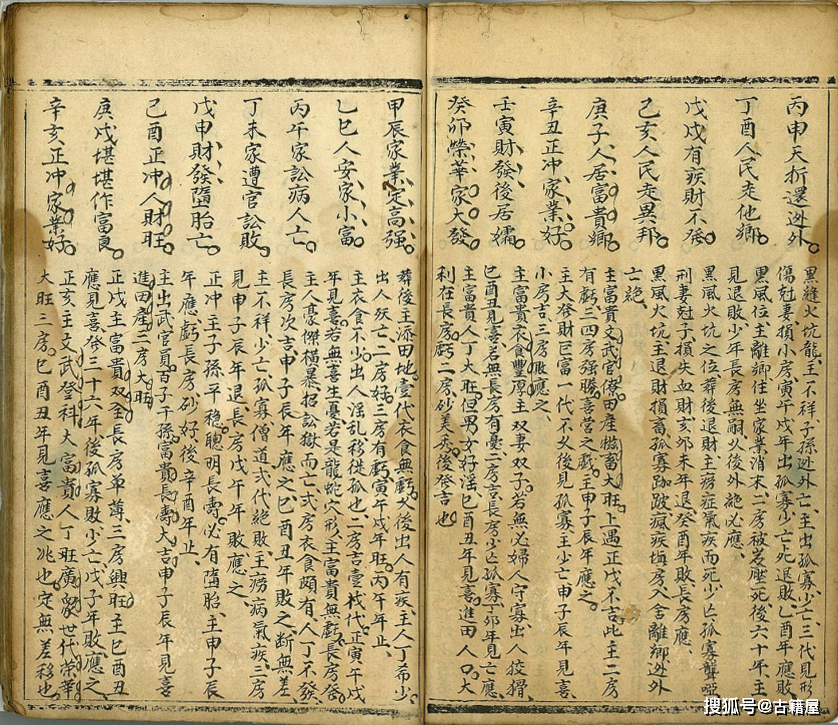 丙申夭折還逊外
黑縫火坑龍主不祥子孫逊外亡主出孤寡少亡三代見形
傷尅妻損小房寅午戌年出孤寡少亡死退敗乙酉年應敗
丁酉人民走他鄉
黑風位主離鄉住坐家業消末二房被差壓死後六十年主
見退敗少年長房無嗣火後外絕必應
戊戌有疾財不發
黑風火坑之位葬後退財主癆症氣疾而死少亡孤寡聾啞
刑妻尅子損失血財亥夘未年退癸酉年敗長房應
己亥人民走異邦
黑風火坑主退財損畜孤寡跏跛瘋疾填房入舍離鄉逊外
亡絕
庚子人居富貴鄉
主富貴文武官僚田產牲畜大旺上遇正戊不吉此主二房
有虧三四房强勝喜营之主申子辰年應之
辛丑正冲家業好
主大發財巨富一代不久後見孤寡主少亡申子辰年見喜
小房吉三房敗應之
壬寅財發後居孀
主富貴衣食豐厚主双妻双子若無必婦人守寡出人狡猾
巳酉丑見喜若無長房有憂二房吉長房少亡孤寡丁卯年見亡應
癸卯榮華家大發
主富貴人丁大旺但男女好淫巳酉丑年見喜進田人口大
利在長房虧二房砂美後發吉也
甲辰家業定高强
葬後主添田地壹代衣食無虧久後出人有疾主人丁希少
出人殀亡二房好三房有虧寅午戌年旺丙午年年止
乙巳人安家小富
主衣食不少出人淫乱移徙孤也二房吉壹代正寅午戌
年見喜若無喜生憂若是龍蛇穴形主富貴無虧長房發
丙午家訟病人亡
主人豪傑橫暴招訟獄而亡弍房衣食頗有人丁不發
長房次吉申子辰年應之巳酉丑年敗之断無差
丁未家遭官訟敗
主不祥少亡孤寡僧道弍代絶敗主癆病氣疾三房
見申子辰年退長房戊午年敗應之
戊申財發墮胎亡
正冲主子孫平穩聰明長壽必有墮胎主申子辰
年應虧長房砂好後辛酉年止
己酉正冲人財旺
主出武官員百子千孫富貴長壽大吉申子辰年見喜
進田產三房大旺
庚戌堪堪作富良
正戊主富貴双全長房单薄三房興旺主巳酉丑
應見喜發三十六年後孤寡敗少亡戊子年敗應之
辛亥正冲家業好
正亥主文武登科大富貴人丁旺廣衆世代荣華
大旺二房巳酉丑年見喜應之兆也定無差移也
搜狐号@古籍屋